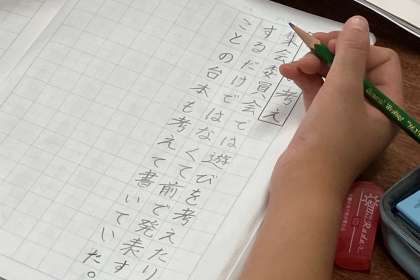 考え
集会委員会では遊びを考えたり
するだけではなくて前で発表す
ことの台本も考えて書いていた。
Radar